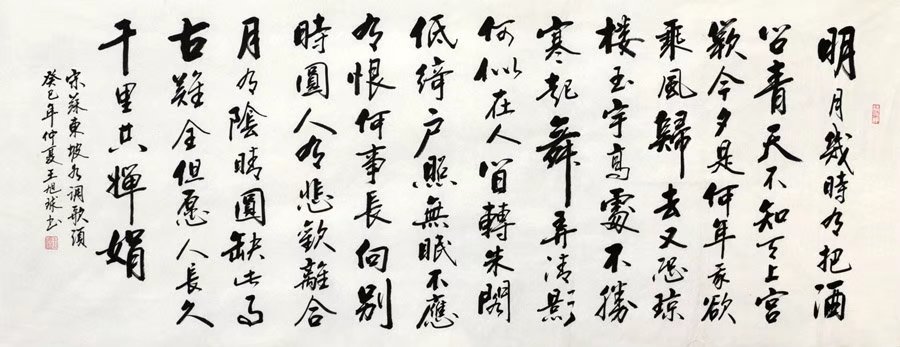 明月幾時有把酒
问青天不知天上宫
闕今夕是何年我欲
乘風歸去又恐琼
楼玉宇高處不勝
寒起舞弄清影
何似在人间轉朱閣
低綺户照無眠不應
有恨何事長向别
時圓人有悲歡離合
月有陰晴圓缺此事
古難全但愿人長久
千里共嬋娟
宋蘇東坡水调歌頭
癸巳年仲夏王旭书